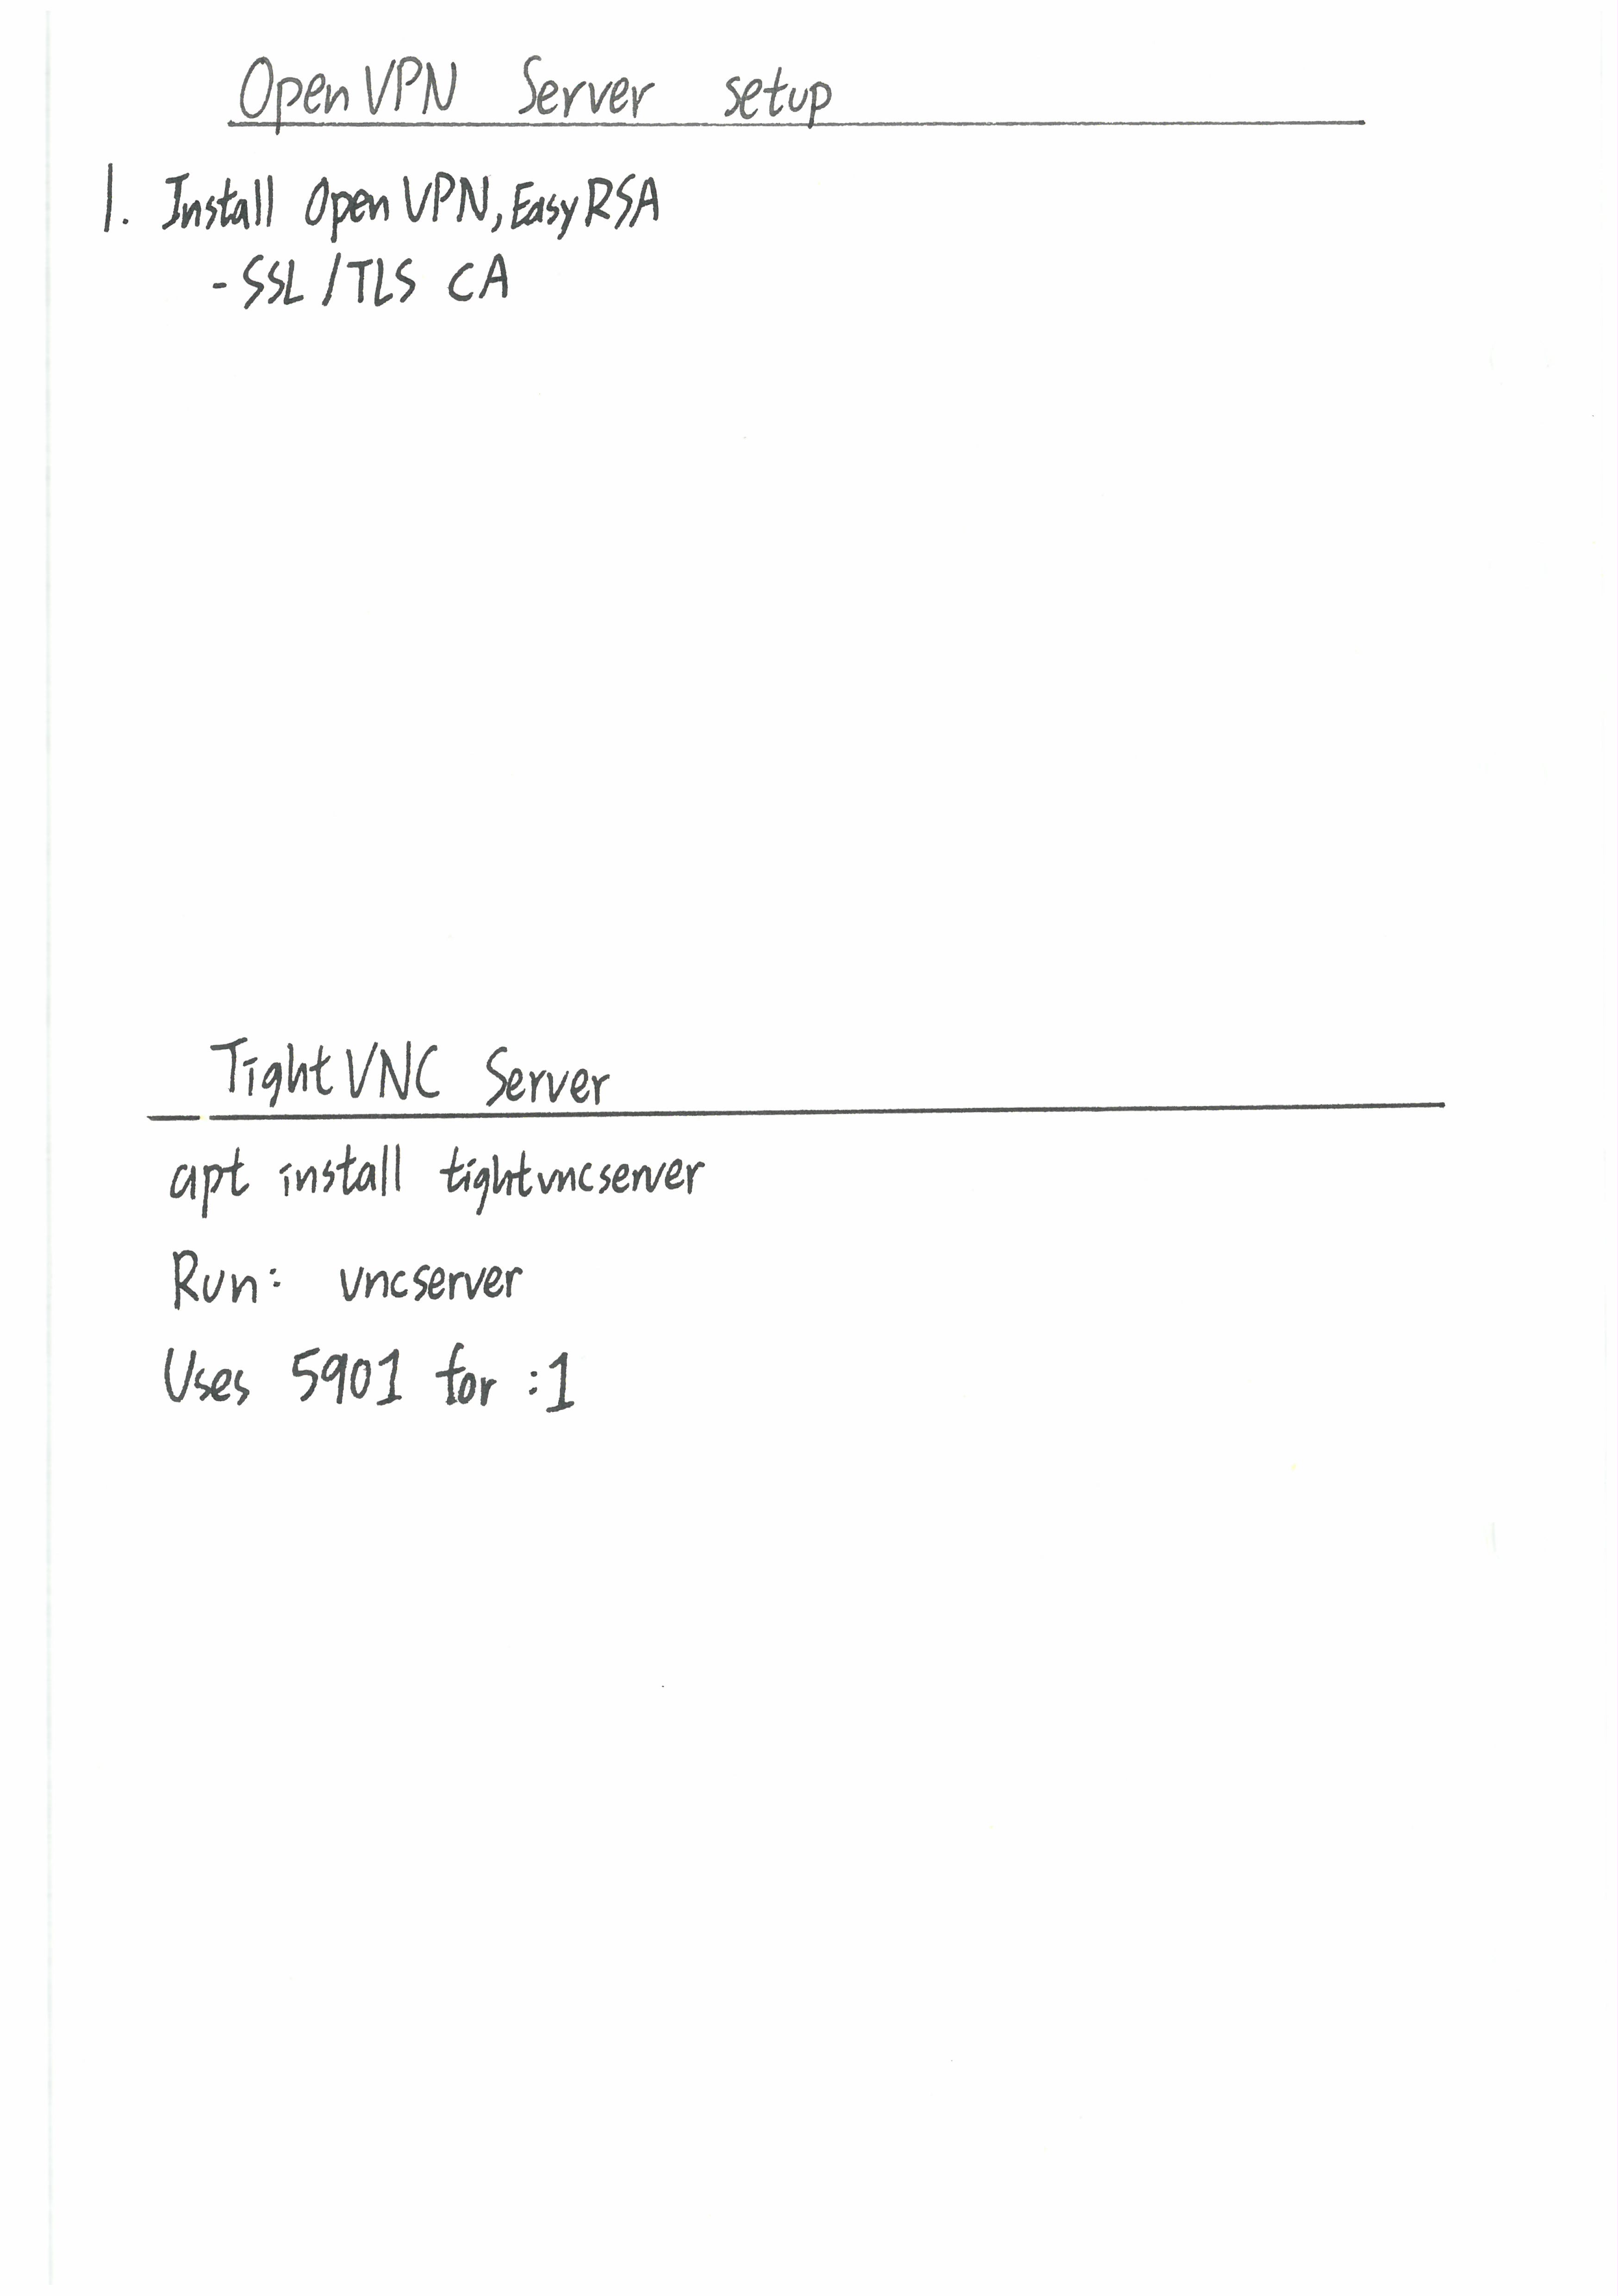 OpenVPN Server setup
1. Install OpenVPN, EasyRSA
- SSL/TLS CA
TightVNC Server
apt install tightvncserver
Run: vncserver
Uses 5901 for :1